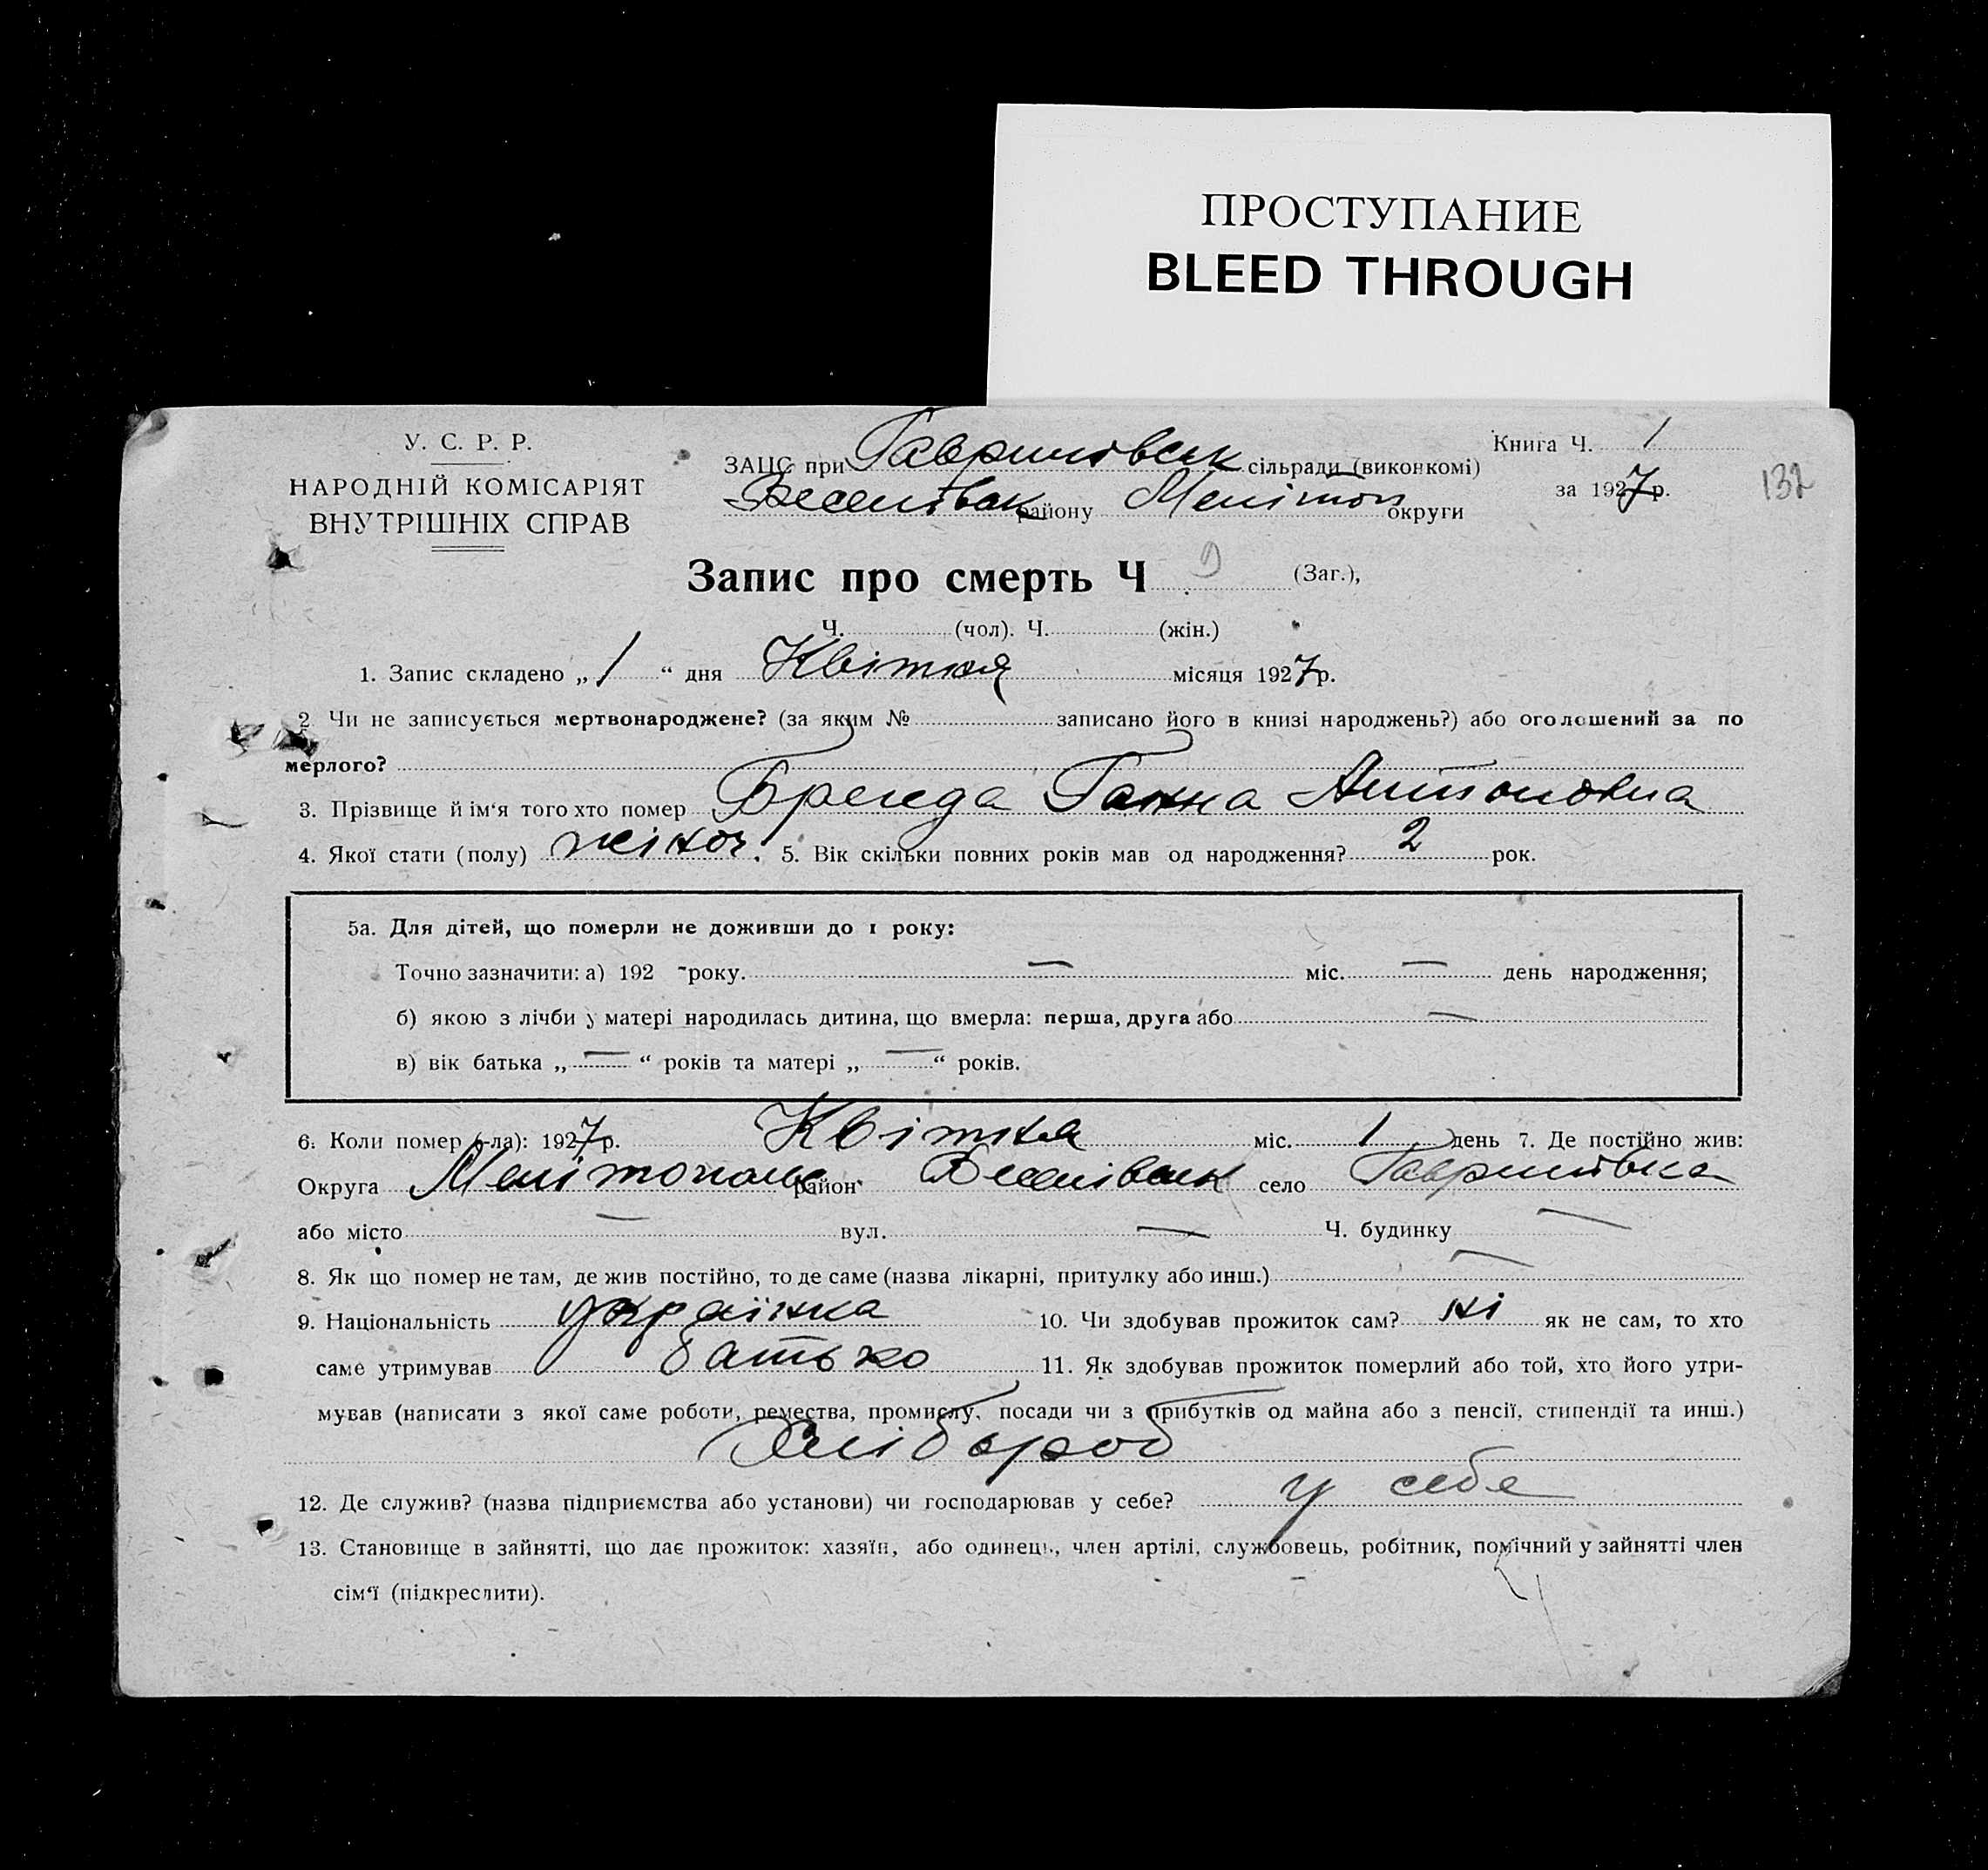 ПРОСТУПАНИЕ
BLEED THROUGH
У. С. Р. Р.
НАРОДНІЙ КОМІСАРІЯТ
ВНУТРІШНІХ СПРАВ
ЗАЦС при Гаврилівськ сільради (виконкомі)
Веселівськ району Меліт округи
Книга Ч. 1
за 1927 р.
132
Запис про смерть Ч 9 (Заг.),
Ч. (чол). Ч. (жін.)
1. Запис складено „ 1 “ дня Квітня місяця 1927 р.
2 Чи не записується мертвонароджене? (за яким № записано його в книзі народжень?) або оголошений за по
мерлого?
3. Прізвище й ім'я того хто помер Ганна Антоновна
4. Якої стати (полу) жіноч. 5. Вік скільки повних років мав од народження? 2 рок.
5а. Для дітей, що померли не доживши до 1 року:
Точно зазначити: а) 192 - року. — міс. — день народження;
б) якою з лічби у матері народилась дитина, що вмерла: перша, друга або —
в) вік батька „ — “ років та матері „ — “ років.
6. Коли помер (-ла): 1927 р. Квітня міс. 1 день 7. Де постійно жив:
Округа район Веселівськ село Гаврилівка
або місто — вул. — Ч. будинку —
8. Як що помер не там, де жив постійно, то де саме (назва лікарні, притулку або инш.) —
9. Національність українка 10. Чи здобував прожиток сам? ні як не сам, то хто
саме утримував батько 11. Як здобував прожиток померлий або той, хто його утри-
мував (написати з якої саме роботи, ремества, промислу, посади чи з прибутків од майна або з пенсії, стипендії та инш.)
Хлібороб
12. Де служив? (назва підприємства або установи) чи господарював у себе? у себе
13. Становище в зайнятті, що дає прожиток: хазяїн, або одинець, член артілі, службовець, робітник, помічний у зайнятті член
сім'ї (підкреслити).